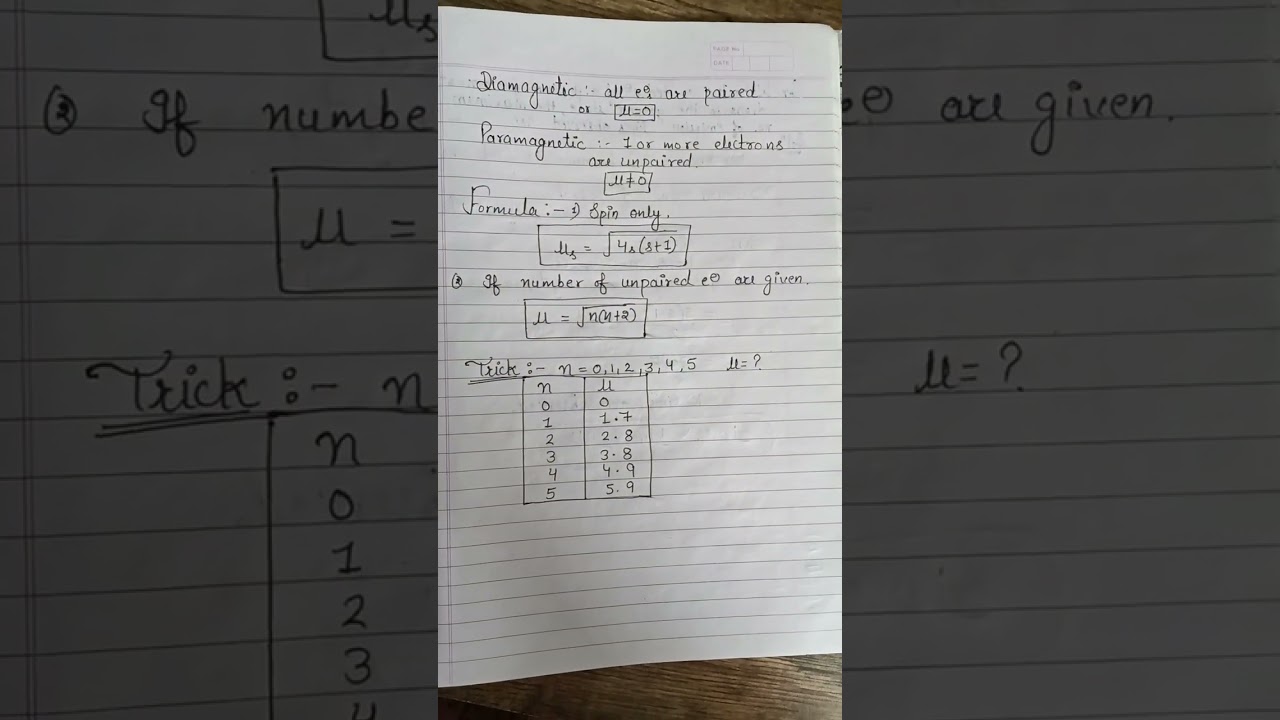 PAGE No.
DATE
Diamagnetic :- all e⊖s are paired
or μ=0
Paramagnetic :- 1 or more electrons
are unpaired.
μ≠0
Formula :- 1) Spin only.
μs = √4s(s+1)
② If number of unpaired e⊖ are given.
μ = √n(n+2)
Trick :- n = 0,1,2,3,4,5 μ=?
n μ
0 0
1 1.7
2 2.8
3 3.8
4 4.9
5 5.9
μs
② If numbe
e⊖ are given.
μ =
Trick :- n
μ=?
n
0
1
2
3
4